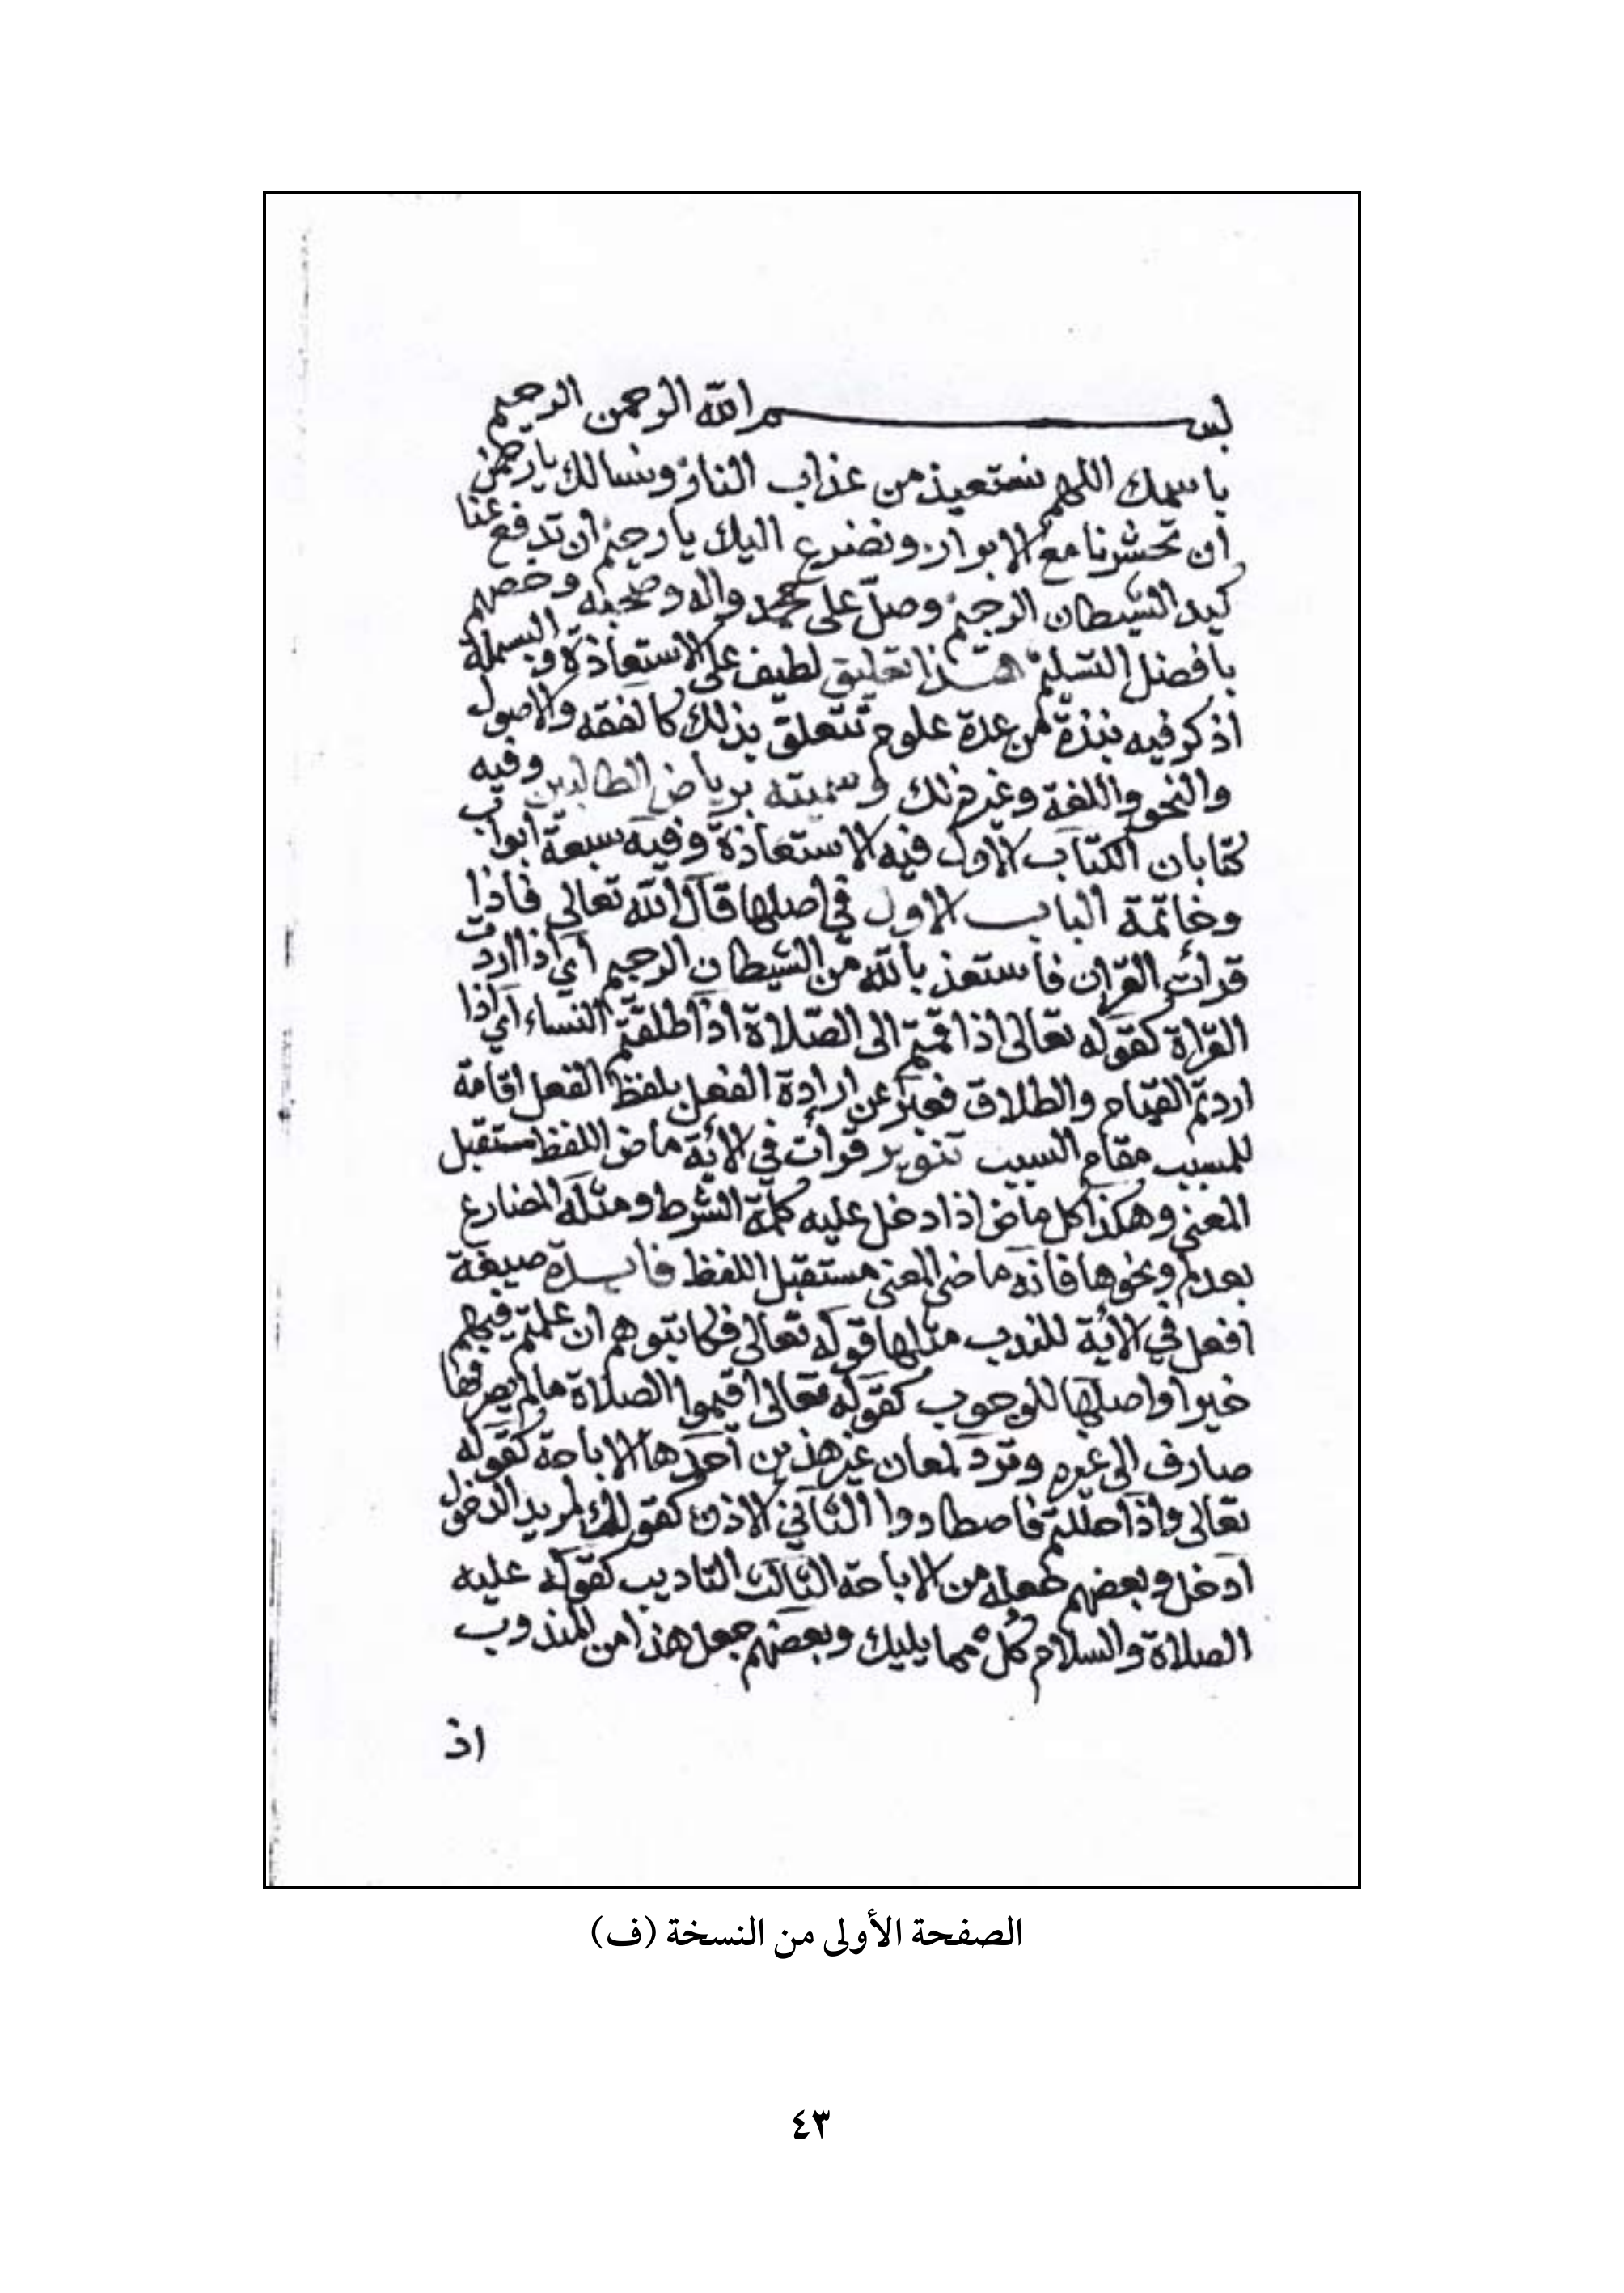 بسم الله الرحمن الرحيم
باسمك اللهم نستعيذ من عذاب النار ونسالك يا رحمن
ان تحشرنا مع الابرار ونضرع اليك يا رحيم ان تدفع عنا
كيد الشيطان الرجيم وصل على محمد واله وصحبه وخصهم
بافضل التسليم هذا تعليق لطيف على الاستعاذة والبسملة
اذكر فيه نبذة من عدة علوم تتعلق بذلك كالفقه والاصول
والنحو واللغة وغير ذلك وسميته برياض الطالبين وفيه
كتابان الكتاب الاول فيه الاستعاذة وفيه سبعة ابواب
وخاتمة الباب الاول في اصلها قال الله تعالى فاذا
قرأت القرآن فاستعذ بالله من الشيطان الرجيم أي اذا اردت
القراة كقوله تعالى اذا قمتم الى الصلاة اذا طلقتم النساء أي اذا
اردتم القيام والطلاق فعبر عن ارادة الفعل بلفظ الفعل اقامة
للمسبب مقام السبب تنوير قرأت في الآية ماض اللفظ مستقبل
المعنى وهكذا كل ماض اذا دخل عليه كلمة الشرط ومثله المضارع
بعد لم ونحوها فانه ماضي المعنى مستقبل اللفظ فايدة صيغة
افعل في الآية للندب مثلها قوله تعالى فكاتبوهم ان علمتم فيهم
خيرا واصلها للوجوب كقوله تعالى اقيموا الصلاة ما لم يصرفها
صارف الى غيره وترد لمعان غير هذين أحدها الاباحة كقوله
تعالى واذا حللتم فاصطادوا الثاني الاذن كقولك لمريد الدخول
ادخل وبعضهم جعله من الاباحة الثالث التاديب كقوله عليه
الصلاة والسلام كل مما يليك وبعضهم جعل هذا من المندوب
اذ
الصفحة الأولى من النسخة (ف)
٤٣